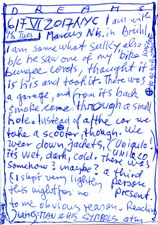 DREAMS
6/7 VI 2017 NYC I am with
Mo Tues Marcus Nis. in Brikl
I am somewhat sulky also
b/c he saw one of my bike
bungee cords, thought it
is his and took it. There was
a garage, and from its back
smoke come through a small
hole. Instead of the car we
take a scooter though. We
wear down jackets, (Uniqlo!
It's wet, dark, cold. There is a
UNIQLO
somehow? maybe? a third
(I slept very lightly person
this night for no present.
to me obvious reason. Reading
Jung: MAN & HIS SYMBOLS